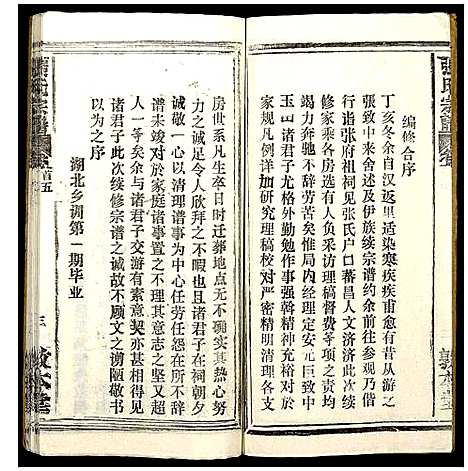 張氏宗譜
編修合序
丁亥冬余自汉返里适染寒疾疾甫愈昔从游之
張致中余来舍述及伊族续宗谱约余往参观乃偕
行诣张府祖祠见张氏户口蕃昌人文济济此次续
修家乘各房君子踊跃督修每于轮项之责修不
竭力奔驰不辞劳苦矣惟局内经理定安元臣致中
玉山诸君子尤格外勤勉作事强斡精神充裕对于
家规凡例研究理稿校对严密精明清理各支
房世系凡生卒日时迁葬地点无不确实其热心努
力之诚却令人欣拜之不暇也且诸君子在祠朝夕
诚敬一心以清理谱事为中心任劳任怨在所不辞
谱未竣对於家庭诸事置之不理其意志之坚
一等矣余与诸君子交游有素意契亦甚相得见
诸君子如此次续修宗谱之诚故不顾文之谫陋敬书
以为之序
湖北乡训第一期毕业
張氏宗譜
首五
三
敦本堂